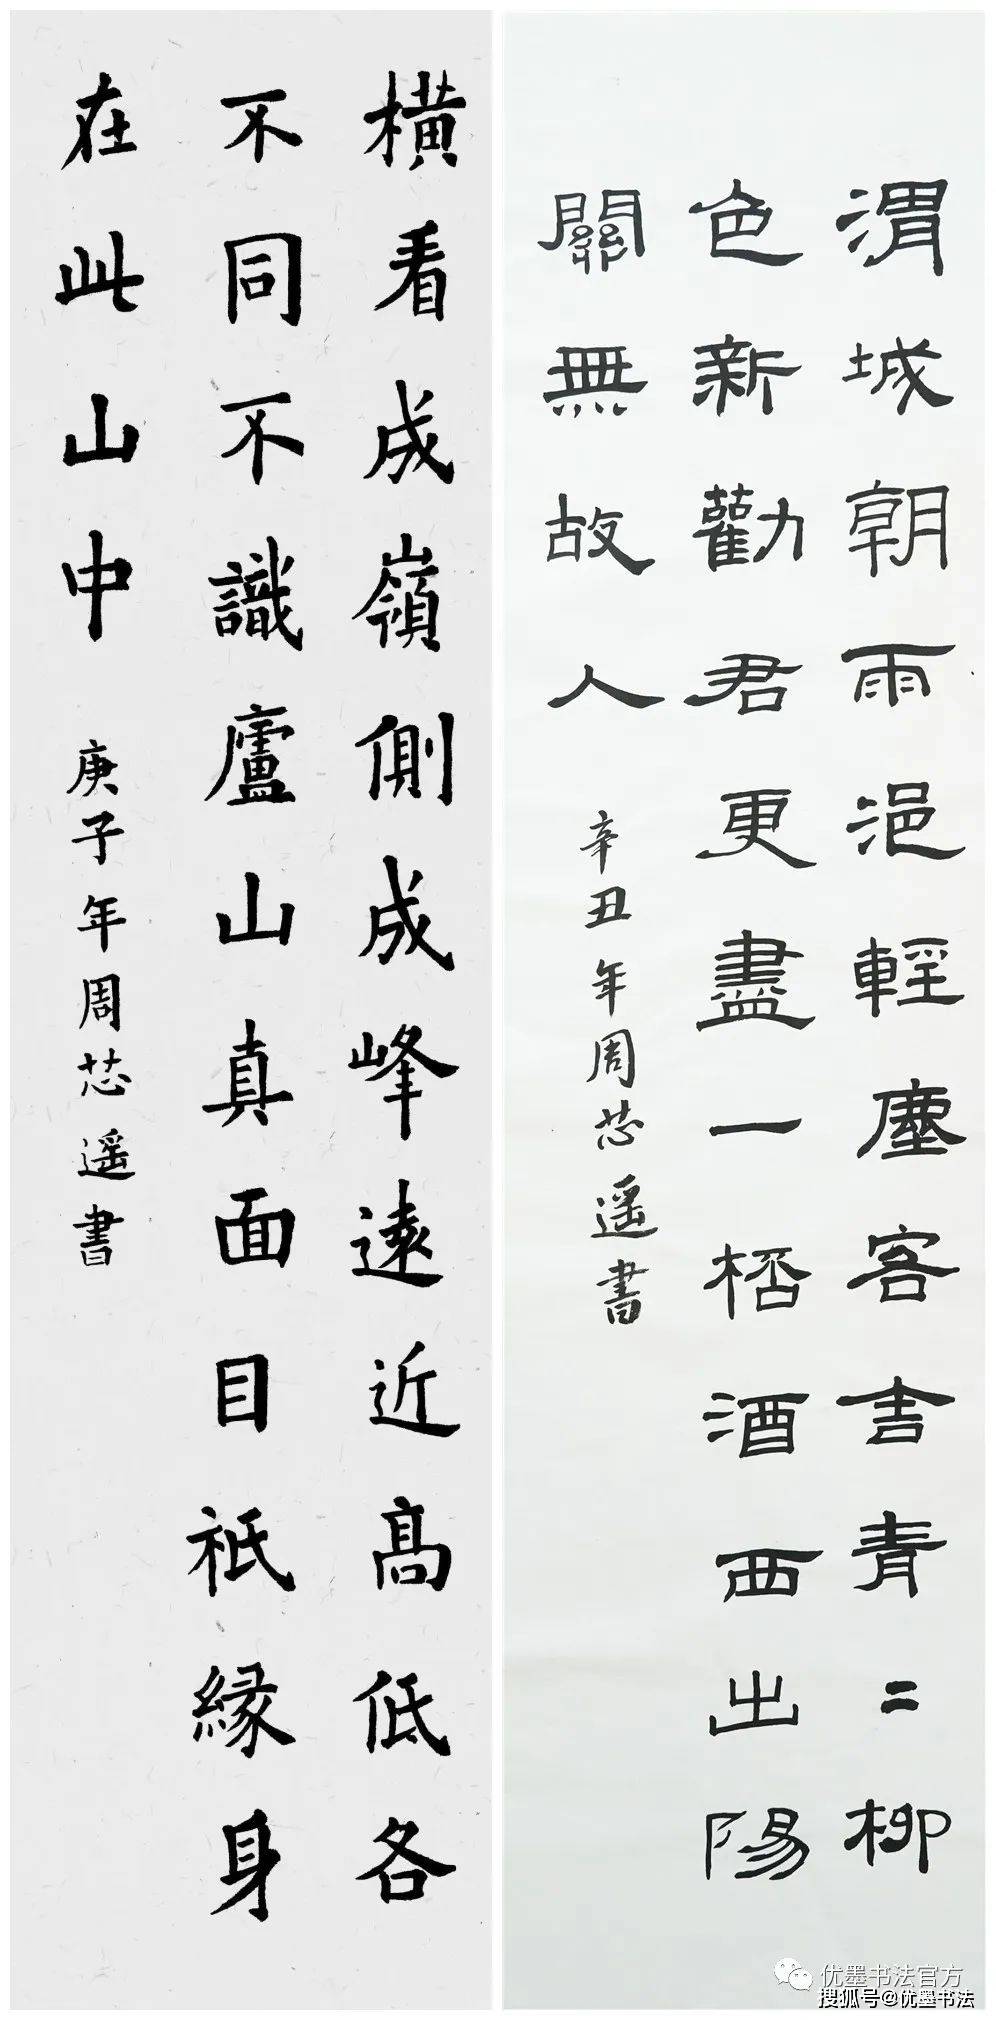 渭城朝雨浥輕塵客舍青〻柳
色新勸君更盡一桮酒西出陽
關無故人
辛丑年周芯遥書
横看成嶺側成峰遠近髙低各
不同不識廬山真面目祇緣身
在此山中
庚子年周芯遥書
优墨书法官方
搜狐号@优墨书法